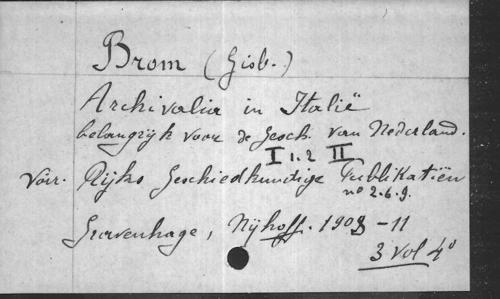 Brom (Gisb.)
Archivalia in Italië
belangrijk voor de Gesch. van Nederland.
I 1.2 II
Voir. Rijks Geschiedkundige Publikatiën
no 2.6.9.
Gravenhage, Nijhoff. 1908-11
3 Vol 4°